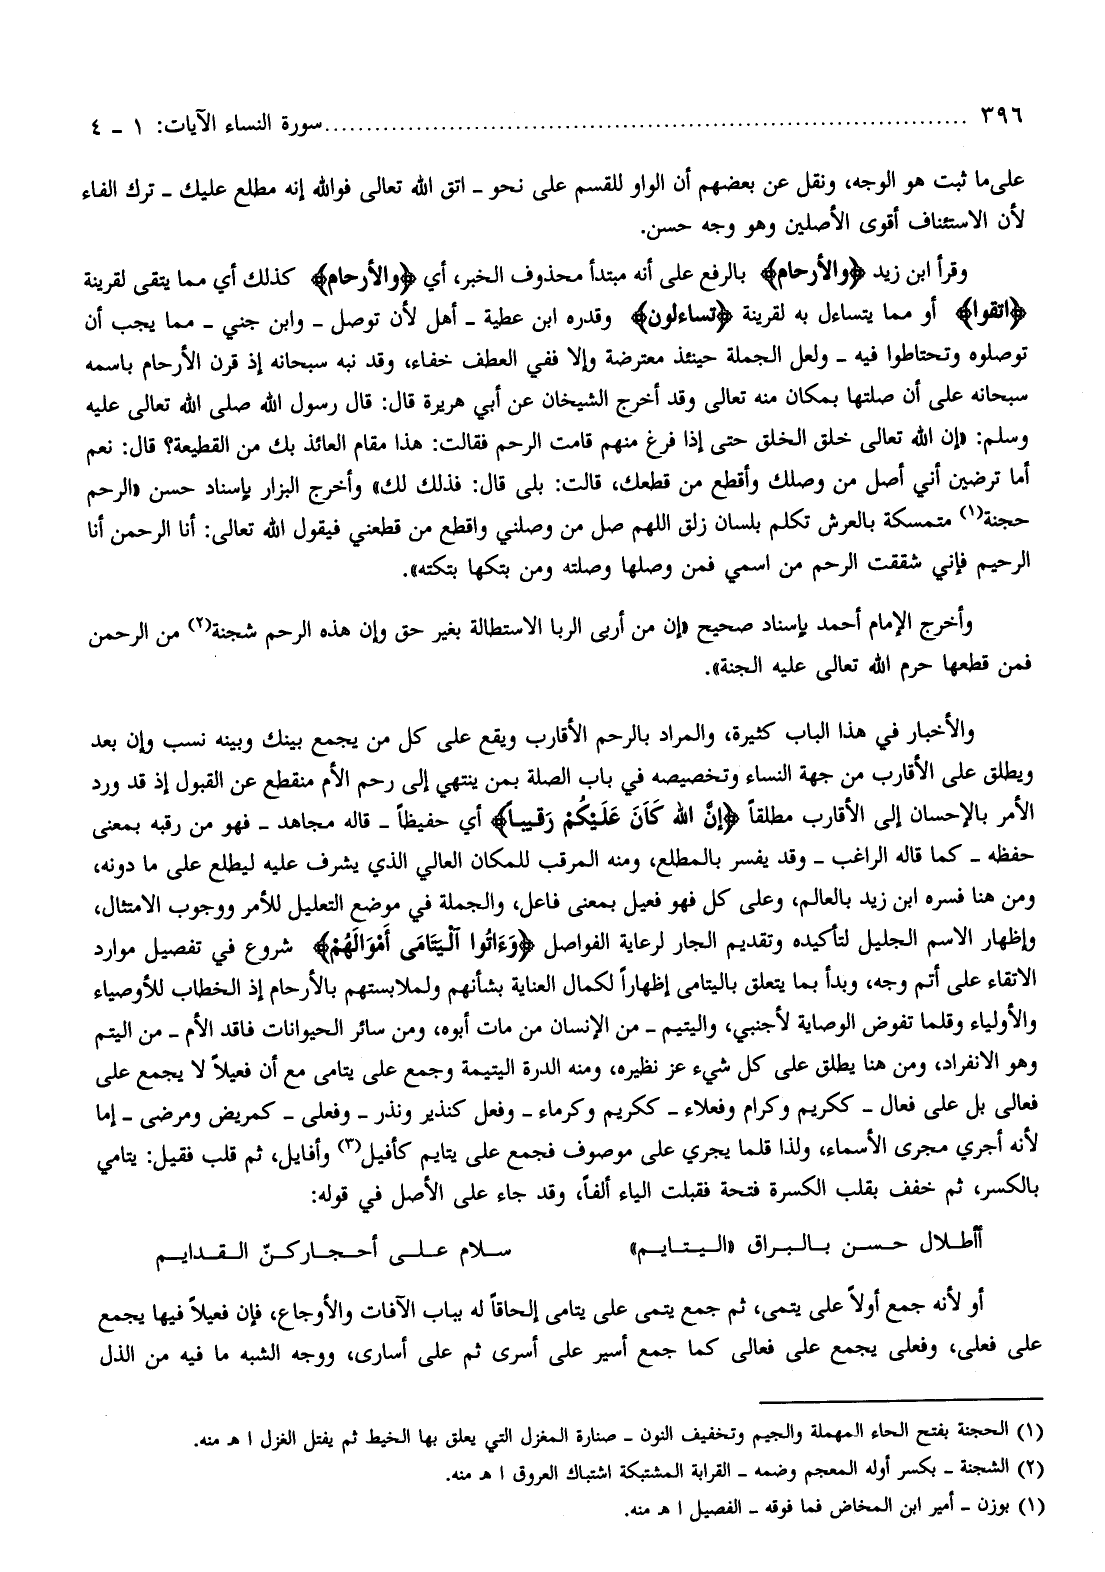 ٣٩٦ ........................................................................ سورة النساء الآيات: ١ ـ ٤
على ما ثبت هو الوجه، ونقل عن بعضهم أن الواو للقسم على نحو ـ اتق الله تعالى فوالله إنه مطلع عليك ـ ترك الفاء
لأن الاستئناف أقوى الأصلين وهو وجه حسن.
وقرأ ابن زيد ﴿والأرحام﴾ بالرفع على أنه مبتدأ محذوف الخبر، أي ﴿والأرحام﴾ كذلك أي مما يتقى لقرينة
﴿اتقوا﴾ أو مما يتساءل به لقرينة ﴿تساءلون﴾ وقدره ابن عطية ـ أهل لأن توصل ـ وابن جني ـ مما يجب أن
توصلوه وتحتاطوا فيه ـ ولعل الجملة حينئذ معترضة وإلا ففي العطف خفاء، وقد نبه سبحانه إذ قرن الأرحام باسمه
سبحانه على أن صلتها بمكان منه تعالى وقد أخرج الشيخان عن أبي هريرة قال: قال رسول الله صلى الله تعالى عليه
وسلم: «إن الله تعالى خلق الخلق حتى إذا فرغ منهم قامت الرحم فقالت: هذا مقام العائذ بك من القطيعة؟ قال: نعم
أما ترضين أني أصل من وصلك وأقطع من قطعك، قالت: بلى قال: فذلك لك» وأخرج البزار بإسناد حسن «الرحم
حجنة(١) متمسكة بالعرش تكلم بلسان زلق اللهم صل من وصلني واقطع من قطعني فيقول الله تعالى: أنا الرحمن أنا
الرحيم فإني شققت الرحم من اسمي فمن وصلها وصلته ومن بتكها بتكته».
وأخرج الإمام أحمد بإسناد صحيح «إن من أربى الربا الاستطالة بغير حق وإن هذه الرحم شجنة(٢) من الرحمن
فمن قطعها حرم الله تعالى عليه الجنة».
والأخبار في هذا الباب كثيرة، والمراد بالرحم الأقارب ويقع على كل من يجمع بينك وبينه نسب وإن بعد
ويطلق على الأقارب من جهة النساء وتخصيصه في باب الصلة بمن ينتهي إلى رحم الأم منقطع عن القبول إذ قد ورد
الأمر بالإحسان إلى الأقارب مطلقاً ﴿إِنَّ الله كَانَ عَلَيْكُمْ رَقِيباً﴾ أي حفيظاً ـ قاله مجاهد ـ فهو من رقبه بمعنى
حفظه ـ كما قاله الراغب ـ وقد يفسر بالمطلع، ومنه المرقب للمكان العالي الذي يشرف عليه ليطلع على ما دونه،
ومن هنا فسره ابن زيد بالعالم، وعلى كل فهو فعيل بمعنى فاعل، والجملة في موضع التعليل للأمر ووجوب الامتثال،
وإظهار الاسم الجليل لتأكيده وتقديم الجار لرعاية الفواصل ﴿وَءَاتُوا ٱلْيَتَامَى أَمْوَالَهُمْ﴾ شروع في تفصيل موارد
الاتقاء على أتم وجه، وبدأ بما يتعلق باليتامى إظهاراً لكمال العناية بشأنهم ولملابستهم بالأرحام إذ الخطاب للأوصياء
والأولياء وقلما تفوض الوصاية لأجنبي، واليتيم ـ من الإنسان من مات أبوه، ومن سائر الحيوانات فاقد الأم ـ من اليتم
وهو الانفراد، ومن هنا يطلق على كل شيء عز نظيره، ومنه الدرة اليتيمة وجمع على يتامى مع أن فعيلاً لا يجمع على
فعالى بل على فعال ـ ككريم وكرام وفعلاء ـ ككريم وكرماء ـ وفعل كنذير ونذر ـ وفعلى ـ كمريض ومرضى ـ إما
لأنه أجري مجرى الأسماء، ولذا قلما يجري على موصوف فجمع على يتايم كأفيل(٣) وأفايل، ثم قلب فقيل: يتامي
بالكسر، ثم خفف بقلب الكسرة فتحة فقبلت الياء ألفاً، وقد جاء على الأصل في قوله:
أأطلال حسن بالبراق «اليتايم» سلام على أحجاركنّ القدايم
أو لأنه جمع أولاً على يتمى، ثم جمع يتمى على يتامى إلحاقاً له بباب الآفات والأوجاع، فإن فعيلاً فيها يجمع
على فعلى، وفعلى يجمع على فعالى كما جمع أسير على أسرى ثم على أسارى، ووجه الشبه ما فيه من الذل
(١) الحجنة بفتح الحاء المهملة والجيم وتخفيف النون ـ صنارة المغزل التي يعلق بها الخيط ثم يفتل الغزل ا هـ منه.
(٢) الشجنة ـ بكسر أوله المعجم وضمه ـ القرابة المشتبكة اشتباك العروق ا هـ منه.
(١) بوزن ـ أمير ابن المخاض فما فوقه ـ الفصيل ا هـ منه.